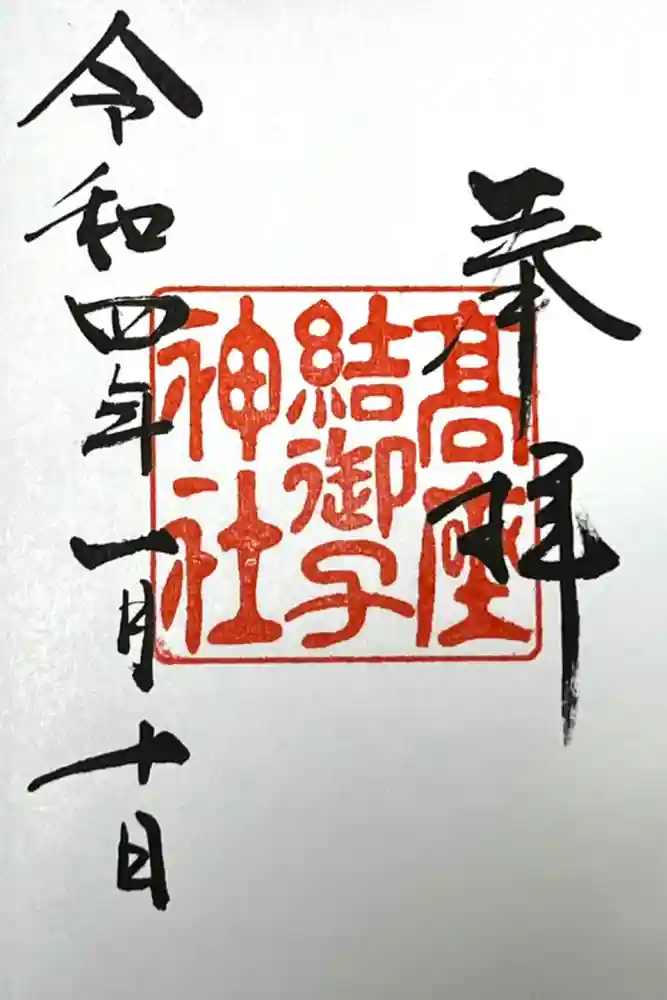 奉拝
髙座
結御子
神社
令和四年一月十日